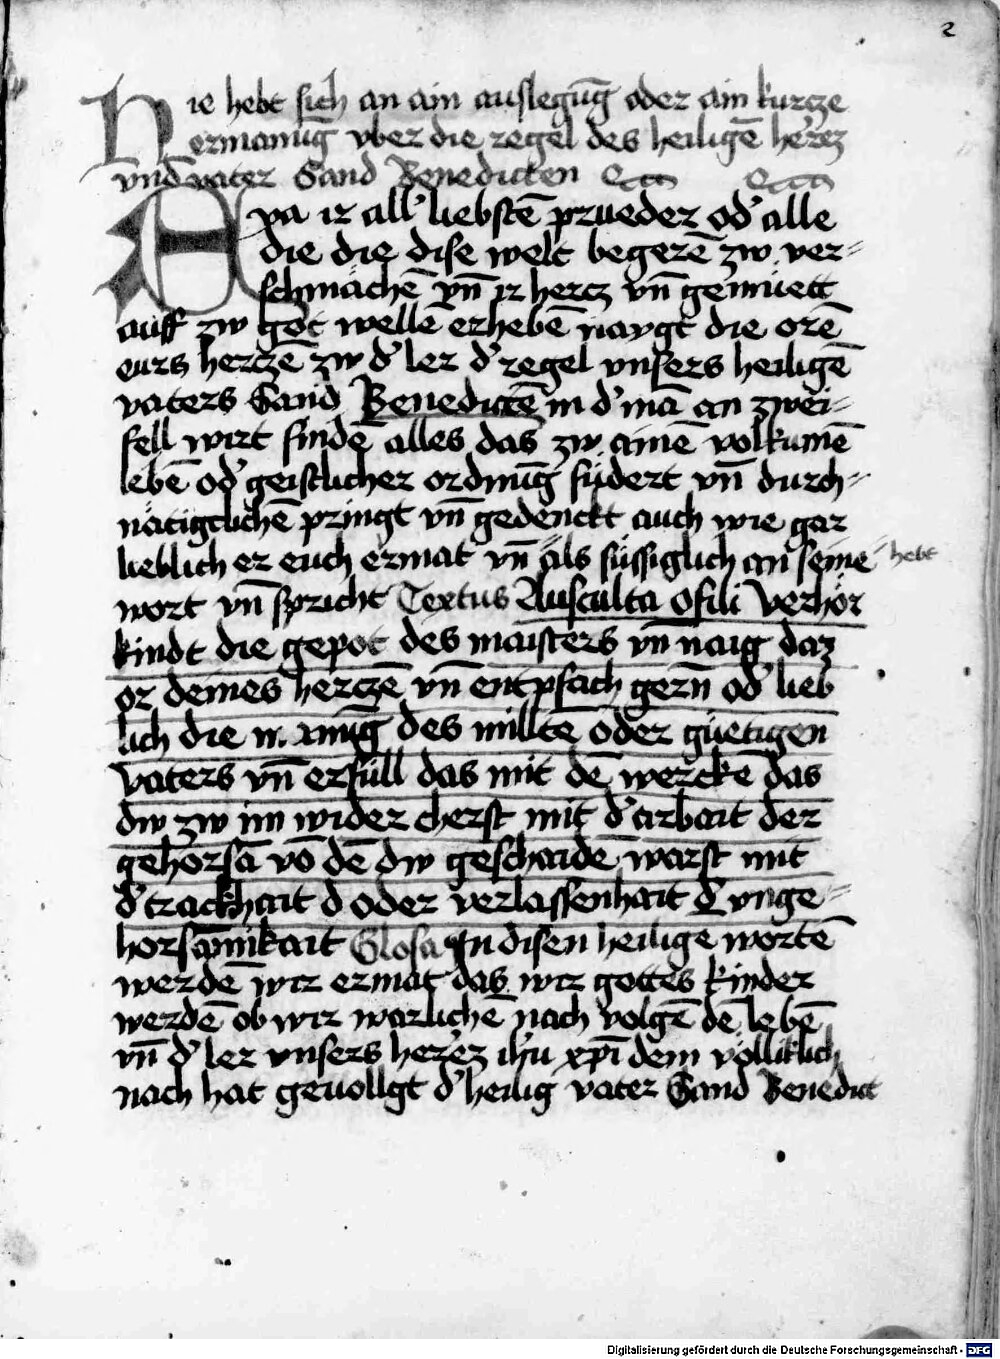 2
Hie hebt sich an ain auslegūg oder ain kurcze
ermanūg vber die regel des heiligē herē
vnd vater Sand Benedicten
Eya ir all liebstē prueder od' alle
die die dise welt begerē zw ver-
schmächē vn̄ ir hercz vn̄ gemüett
auff zw got wellē erhebē naygt die orē
eurs herczē zw d' ler d' regel vnsers heiligē
vaters Sand Benedictē in d' mā an zwei-
fell wirt findē alles das zw ainē volkumē
lebē od' geistlicher ordnūg füdert vn̄ durch-
nätigclichē pringt vn̄ gedenckt auch wie gar
lieblich er euch ermāt vn̄ als süssiglich an seine hebt
wort vn̄ spricht Textus Ausculta o fili Verhör
kindt die gepot des maisters vn̄ naig daz
or deines herczē vn̄ entpfach gern̄ od' lieb
lich die m. nūg des miltē oder güetigen
vaters vn̄ erfüll das mit dē werckē das
dw zw im wider cherst mit d' arbait der
gehorsā vō dē dw geschaidē warst mit
d' trackhait d oder verlassenhait d' vnge-
horsamikait Glosa In disen heilige wortē
werdē wir ermāt das wir gottes kinder
werdē ob wir warlichē nach volgē dē lebē
vn̄ d' ler vnsers herez ihū xpī dem völliklich
nach hat geuollgt d' heilig vater Sand Benedict
Digitalisierung gefördert durch die Deutsche Forschungsgemeinschaft - DFG